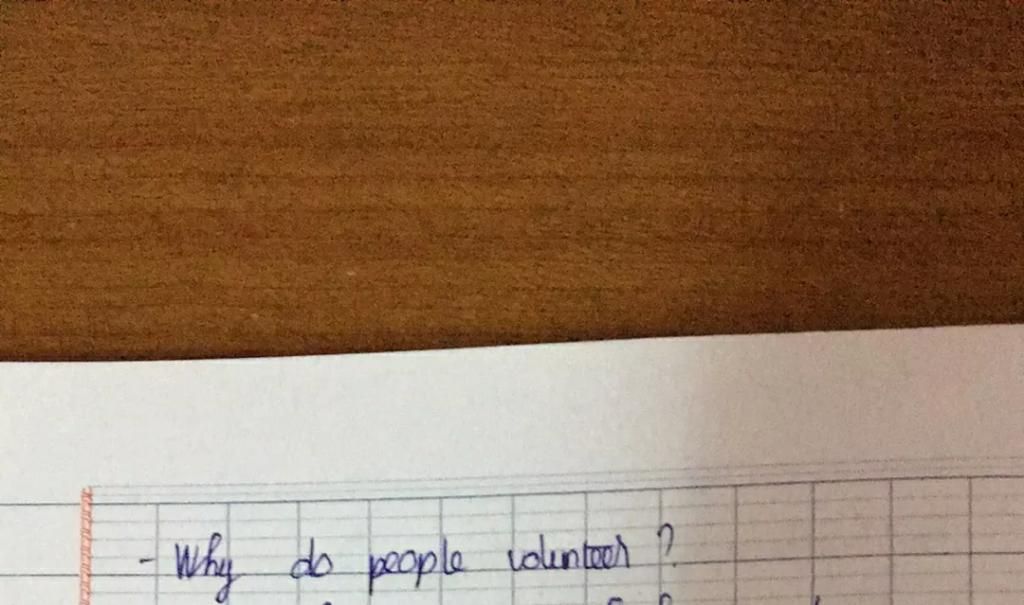 - Why do people volunteer ?